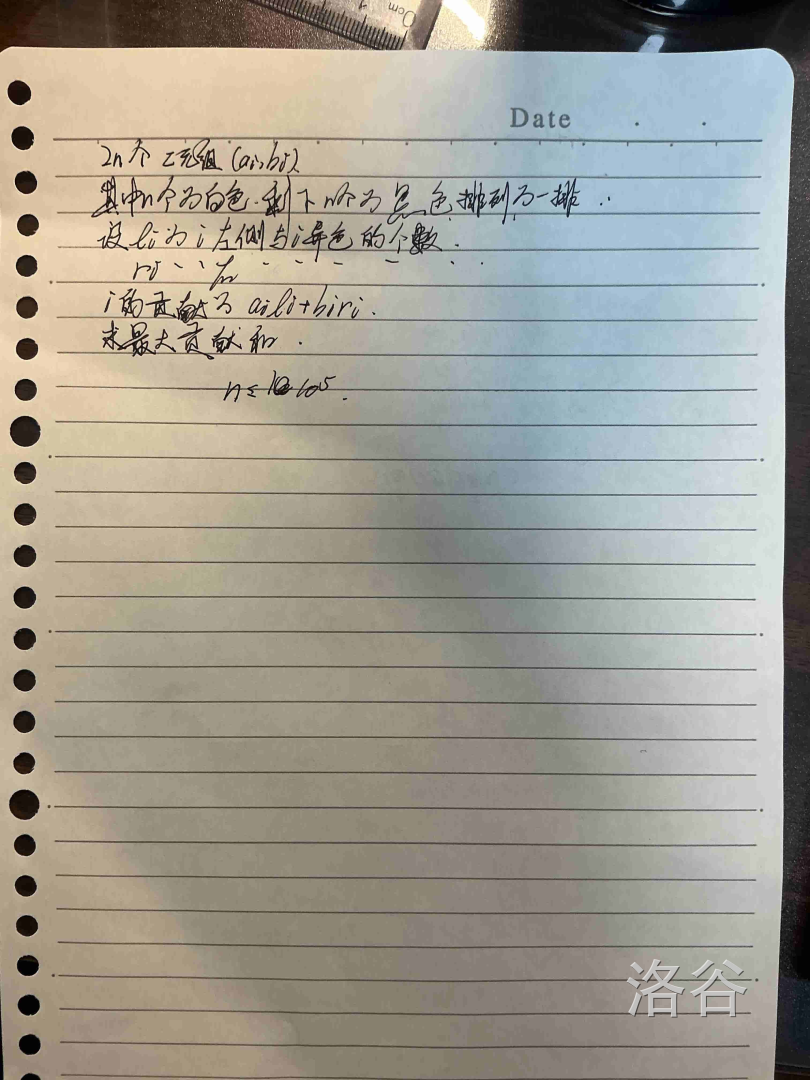 0cm 1
Date
2n个二元组(ai,bi)
其中n个为白色.剩下n个为黑色排列为一排.
设li为i左侧与i异色的个数.
ri 、、右
i的贡献为 aili+biri.
求最大贡献和.
n≤ 10^5.
洛谷